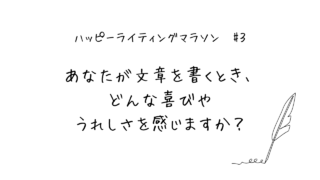 ハッピーライティングマラソン　#3
あなたが文章を書くとき、
どんな喜びや
うれしさを感じますか？